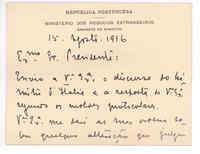 REPÚBLICA PORTUGUESA
MINISTÉRIO DOS NEGÓCIOS ESTRANGEIROS
GABINETE DO MINISTRO
15. Agosto. 1916
Exmo Sr. Presidente:
Envio a V. Exa. o discurso do Mi
nistro d'Italia e a resposta de V. Exa
segundo os moldes particulares.
V. Exa. me dará as suas ordens so
bre qualquer alteração que julgar